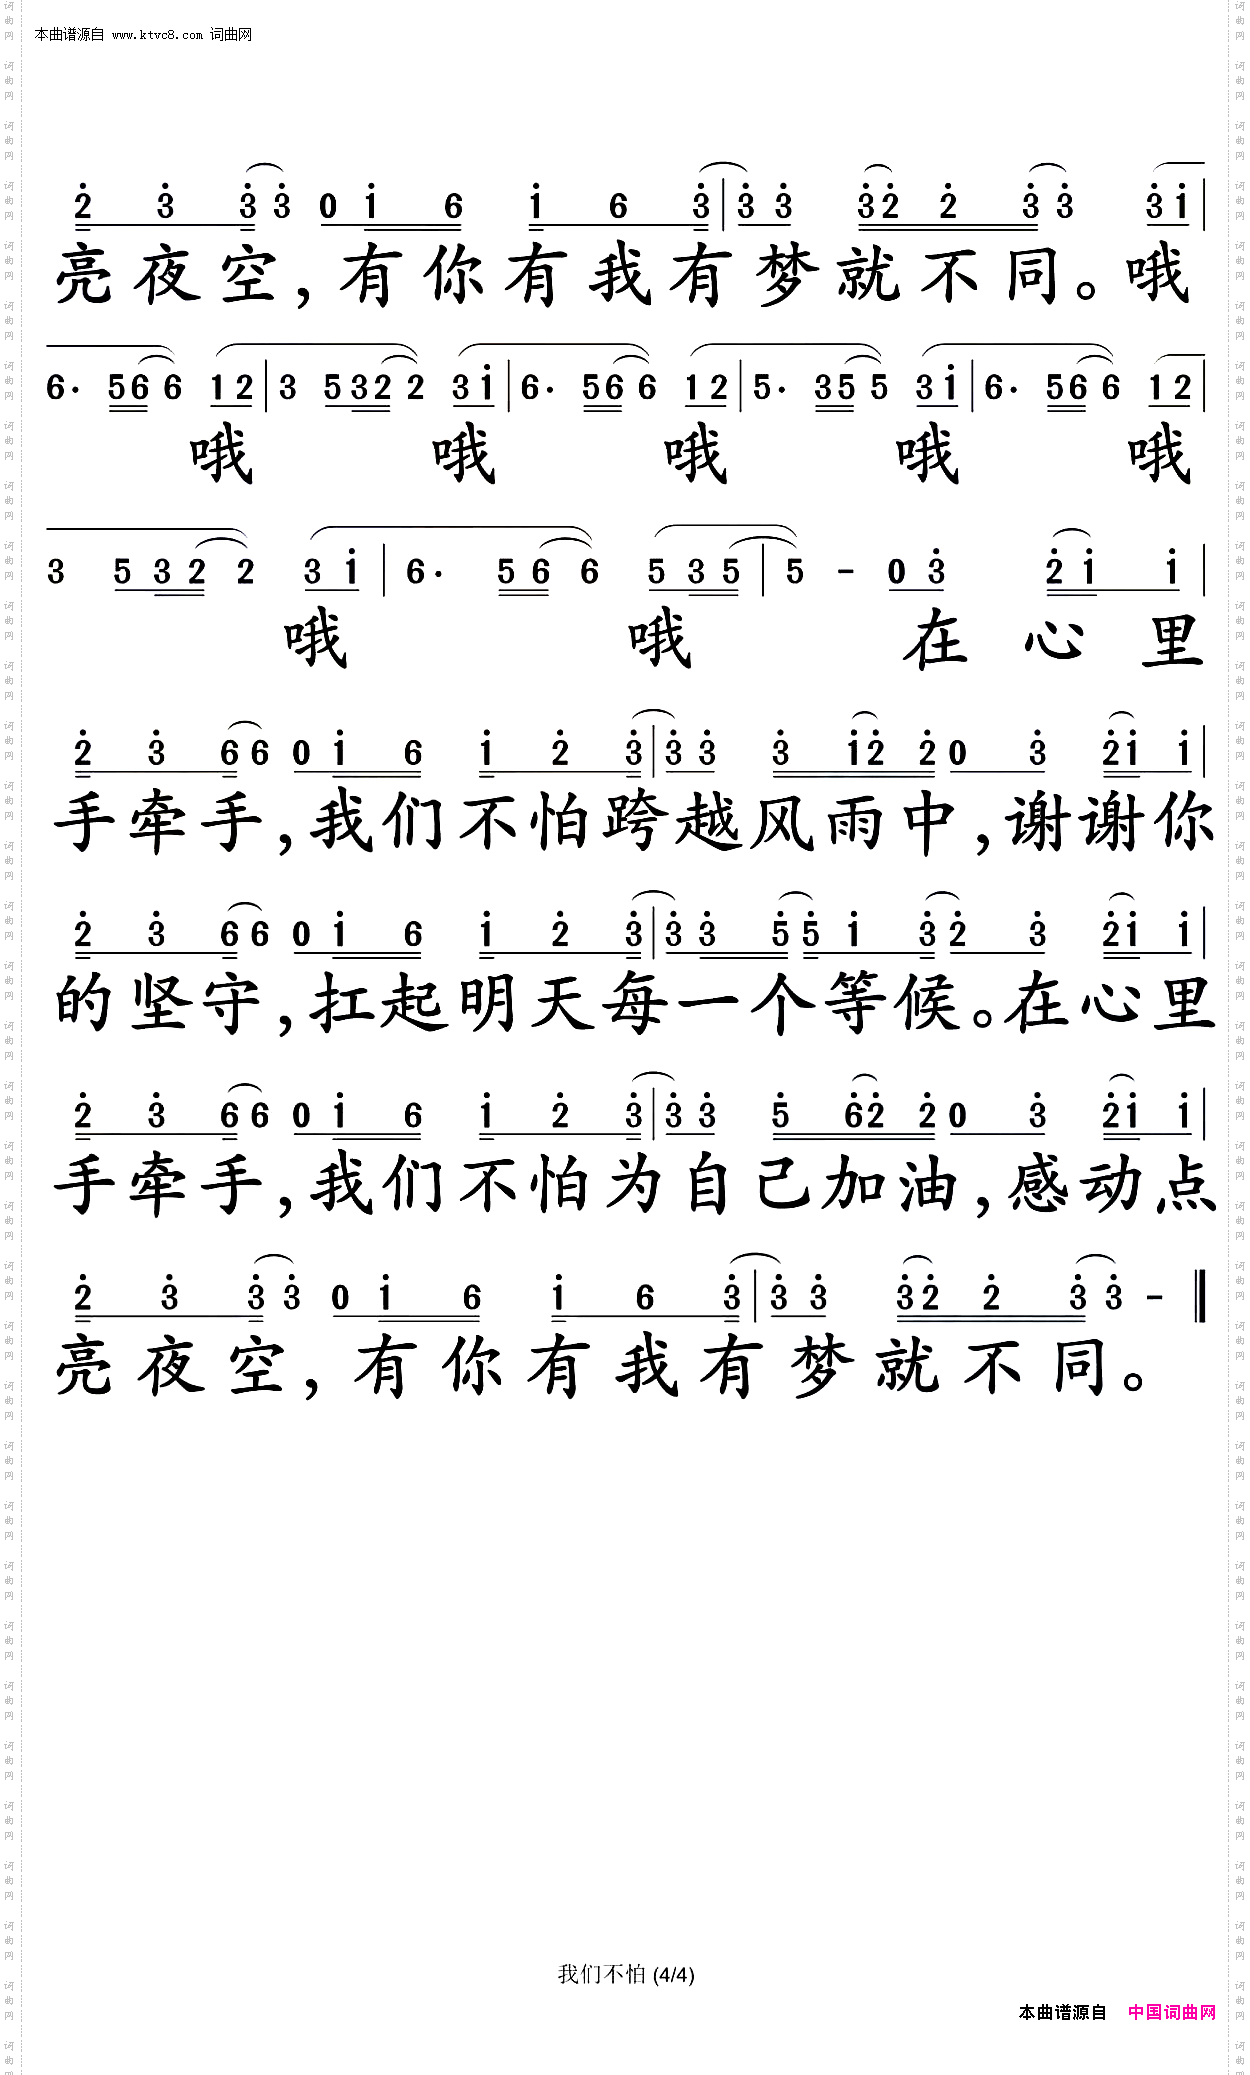 本曲谱源自 www.ktvc8.com 词曲网
2 3 3 3 0 1 6 1 6 3 | 3 3 3 2 2 3 3 3 1 |
亮夜空，有你有我有梦就不同。哦
6· 5 6 6 1 2 | 3 5 3 2 2 3 1 | 6· 5 6 6 1 2 | 5· 3 5 5 3 1 | 6· 5 6 6 1 2 |
哦 哦 哦 哦 哦
3 5 3 2 2 3 1 | 6· 5 6 6 5 3 5 | 5 - 0 3 2 1 1 |
哦 哦 在心里
2 3 6 6 0 1 6 1 2 3 | 3 3 3 1 2 2 0 3 2 1 1 |
手牵手，我们不怕跨越风雨中，谢谢你
2 3 6 6 0 1 6 1 2 3 | 3 3 5 5 1 3 2 3 2 1 1 |
的坚守，扛起明天每一个等候。在心里
2 3 6 6 0 1 6 1 2 3 | 3 3 5 6 2 2 0 3 2 1 1 |
手牵手，我们不怕为自己加油，感动点
2 3 3 3 0 1 6 1 6 3 | 3 3 3 2 2 3 3 - ‖
亮夜空，有你有我有梦就不同。
我们不怕 (4/4)
本曲谱源自 中国词曲网